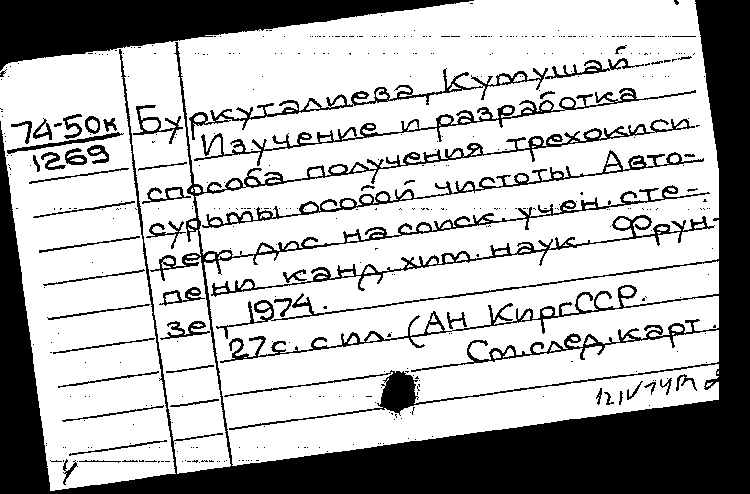 74-50к
1269
Буркуталиева, Кутушай
Изучение и разработка
способа получения трехокиси
сурьмы особой чистоты. Авто-
реф. дис. на соиск. учен. сте-
пени канд. хим. наук. Фрун-
зе, 1974.
27с. с ил. (АН КиргССР.
См. след. карт.